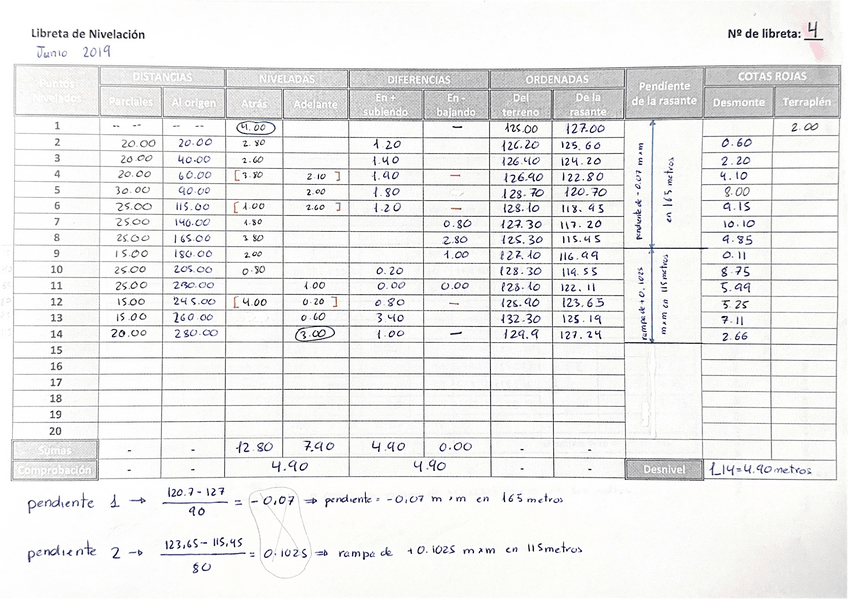 Libreta de Nivelación
Nº de libreta: 4
Junio 2019
Puntos nivelados DISTANCIAS NIVELADAS DIFERENCIAS ORDENADAS Pendiente de la rasante COTAS ROJAS
Parciales Al origen Atrás Adelante En + subiendo En - bajando Del terreno De la rasante Desmonte Terraplén
1 -- -- -- -- 4.00 — 125.00 127.00 2.00
2 20.00 20.00 2.80 1 20 126.20 125.60 0.60
3 20.00 40.00 2.60 1.40 126.40 124.20 2.20
4 20.00 60.00 [3.80 2.10] 1.90 — 126.90 122.80 4.10
5 30.00 90.00 2.00 1.80 128.70 120.70 8.00
6 25.00 115.00 [1.00 2.60] 1.20 — 128.10 118.95 9.15
7 25.00 140.00 1.80 0.80 127.30 117.20 10.10
8 25.00 165.00 3.80 2.80 125.30 115.45 9.85
9 15.00 180.00 2.00 1.00 127.10 116.99 0.11
10 25.00 205.00 0.80 0.20 128.30 119.55 8.75
11 25.00 230.00 1.00 0.00 0.00 128.10 122.11 5.99
12 15.00 245.00 [4.00 0.20] 0.80 — 128.90 123.65 5.25
13 15.00 260.00 0.60 3.40 132.30 125.19 7.11
14 20.00 280.00 3.00 1.00 — 129.9 127.24 2.66
pendiente de -0.07 m×m
en 165 metros
rampa de +0.1025
m×m en 115 metros
15
16
17
18
19
20
Sumas - - 12.80 7.90 4.90 0.00 - -
Comprobación - - 4.90 4.90 - - Desnivel 1_14=4.90 metros
pendiente 1 → 120.7-127 / 90 = -0,07 ⇒ pendiente = -0,07 m×m en 165 metros
pendiente 2 → 123,65-115,45 / 80 = 0.1025 ⇒ rampa de +0.1025 m×m en 115 metros